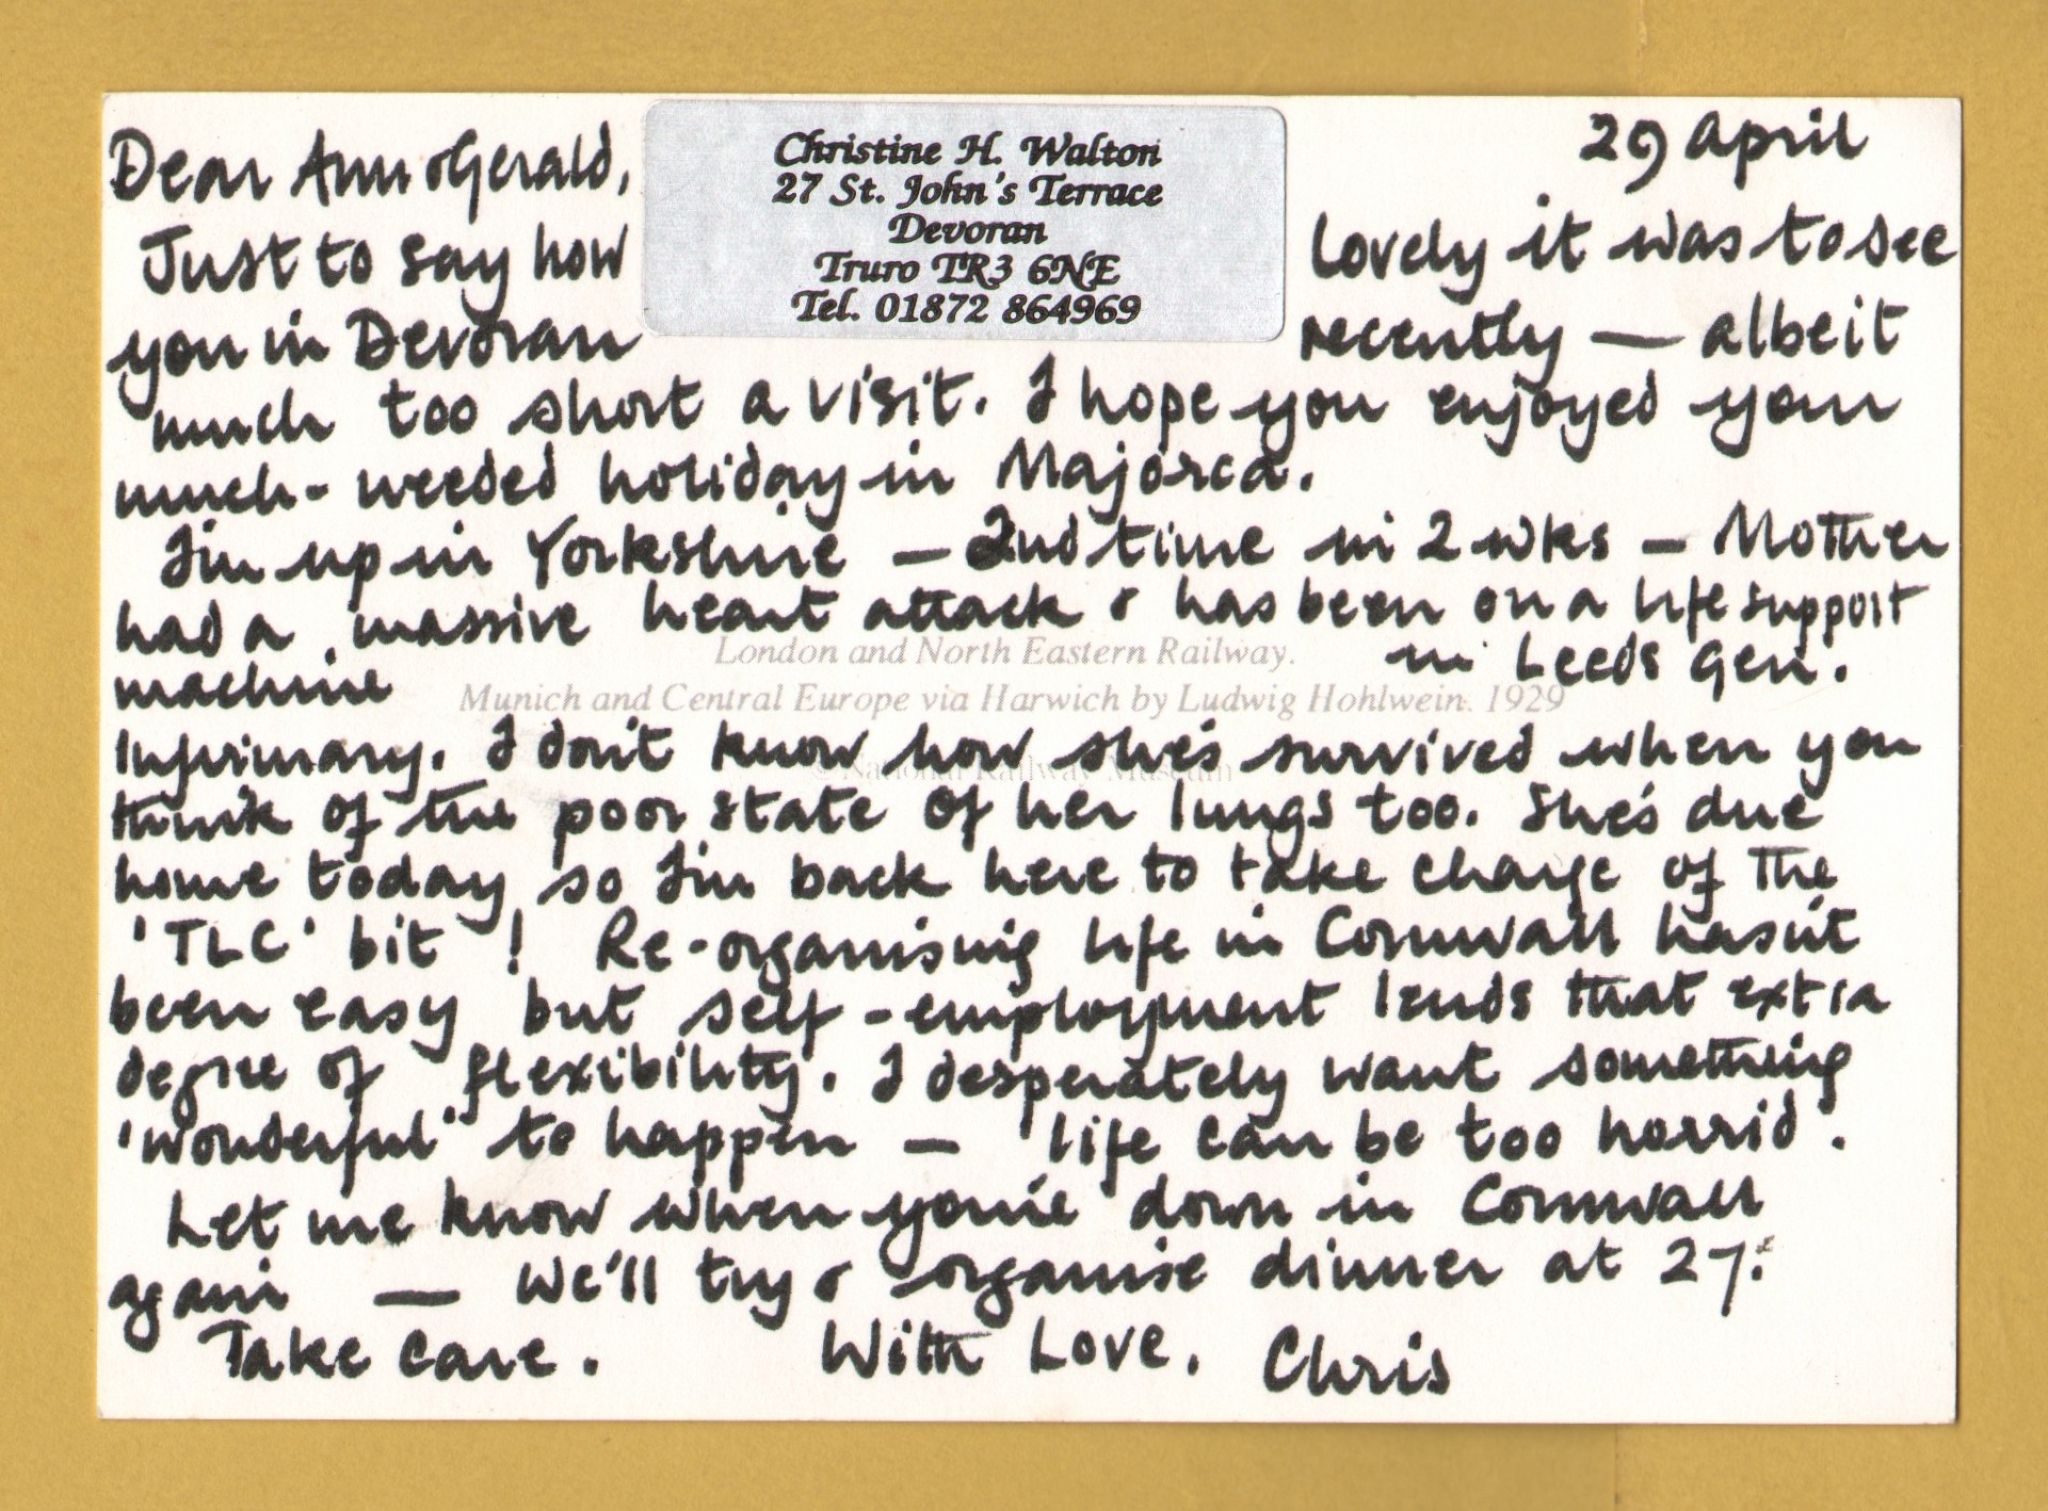 29 April
Dear Ann & Gerald,
Christine H. Walton
27 St. John's Terrace
Devoran
Truro TR3 6NE
Tel. 01872 864969
Just to say how lovely it was to see
you in Devoran recently — albeit
much too short a visit. I hope you enjoyed your
much-needed holiday in Majorca.
I'm up in Yorkshire — 2nd time in 2 wks — Mother
had a massive heart attack & has been on a life support
machine in Leeds Gen.
London and North Eastern Railway.
Munich and Central Europe via Harwich by Ludwig Hohlwein. 1929
© National Railway Museum
Infirmary. I don't know how she's survived when you
think of the poor state of her lungs too. She's due
home today so I'm back here to take charge of the
'TLC' bit! Re-organising life in Cornwall hasn't
been easy but self-employment lends that extra
degree of flexibility. I desperately want something
'wonderful' to happen — life can be too horrid.
Let me know when you're down in Cornwall
again — we'll try & organise dinner at 27!
Take care. With Love, Chris